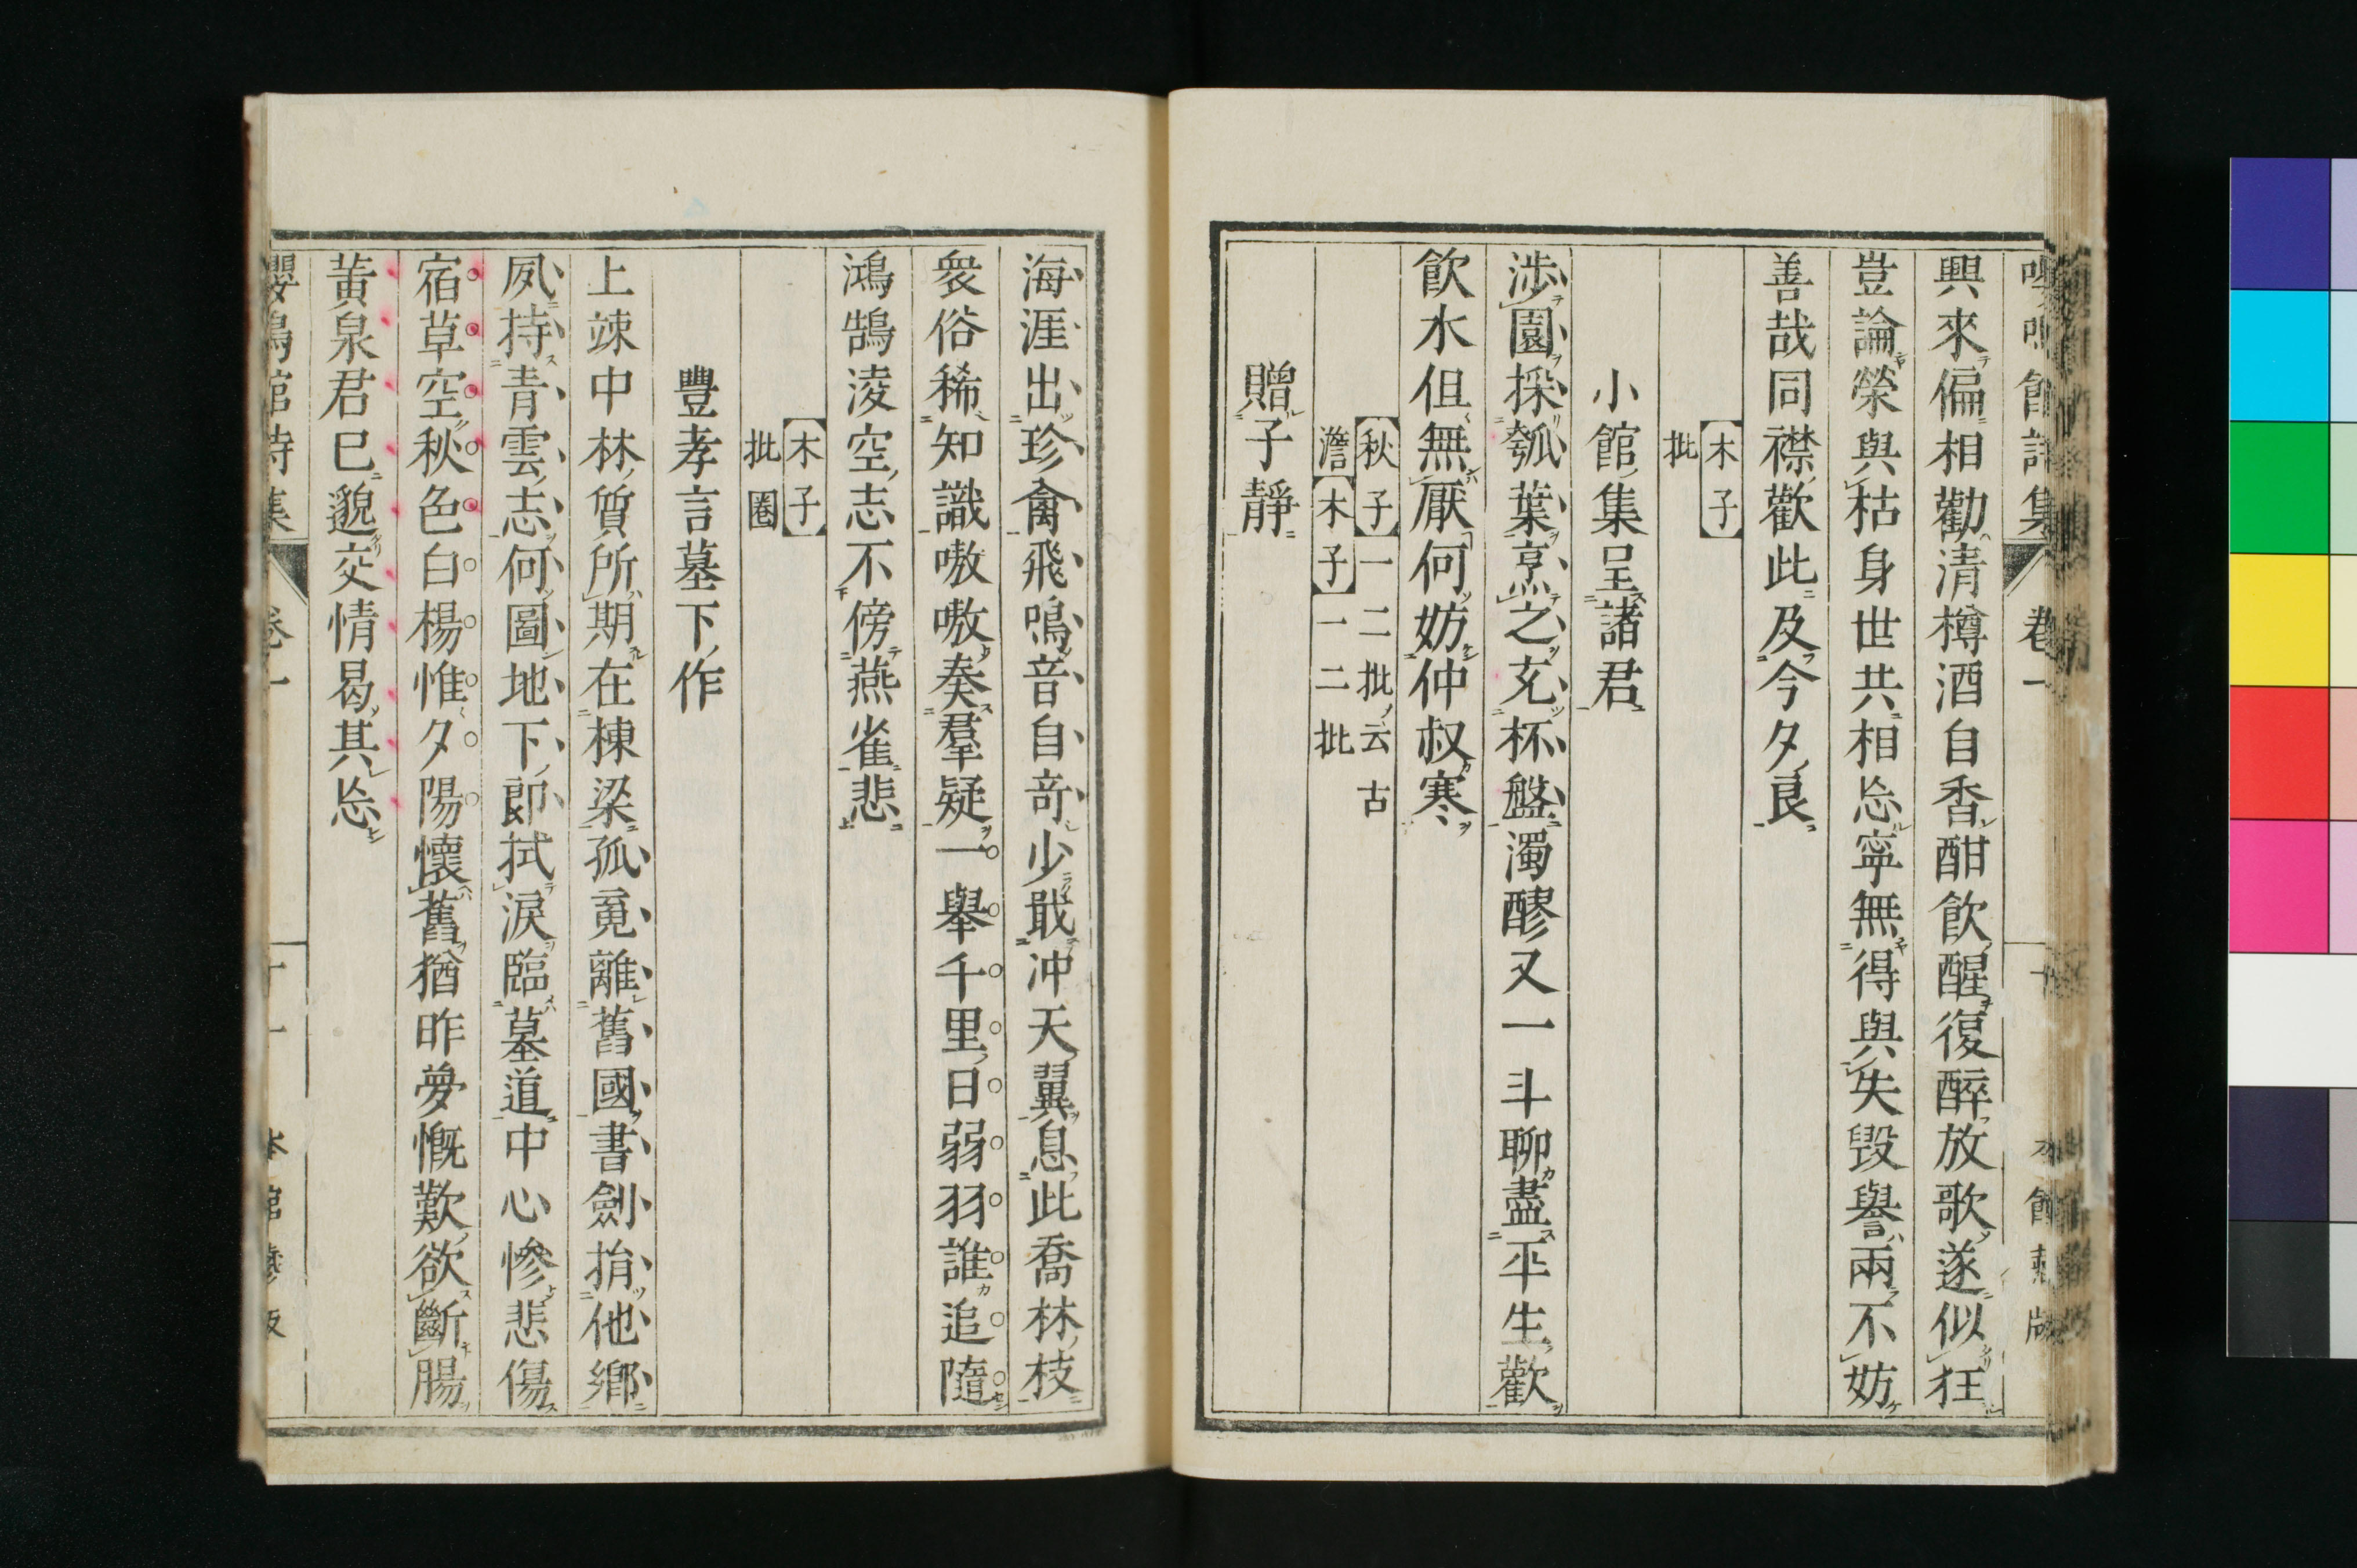 嚶鳴館詩集 卷一 十 本館藏版
興來偏相勸清樽酒自香酣飲醒復醉放歌遂似狂
豈論榮與枯身世共相忘寧無得與失毀譽兩不妨
善哉同襟歡此及今夕良
【木子】
批
小館集呈諸君
涉園採瓠葉烹之充杯盤濁醪又一斗聊盡平生歡
飲水但無厭何妨仲叔寒
【秋子】一二批云古
澹【木子】一二批
贈子靜
海涯出珍禽飛鳴音自奇少戢冲天翼息此喬林枝
衆俗稀知識嗷嗷奏羣疑一舉千里日弱羽誰追隨
鴻鵠淩空志不傍燕雀悲
【木子】
批圈
豐孝言墓下作
上竦中林質所期在棟梁孤竟離舊國書劍捐他鄉
夙持青雲志何圖地下郎拭淚臨墓道中心慘悲傷
宿草空秋色白楊惟夕陽懷舊猶昨夢慨歎欲斷腸
黃泉君已邈交情曷其忘
嚶鳴館詩集 卷一 十一 本館藏版